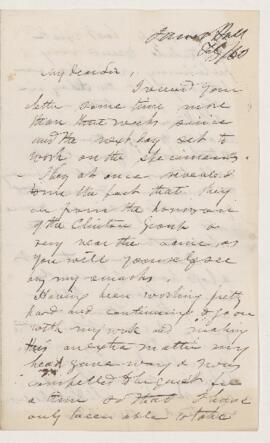 James Hall
My dear Sir,
I received your
letter some time more
than that week since
and the next day set to
work on the specimens
They at once revealed
to me the fact that they
are from the horizon
of the Clinton Group or
very near the same, as
you will yourself see
by my remarks.
Having been working pretty
hard and continuing to go on
with my work and making
this an extra matter my
head gave way & I was
compelled to be quiet for
a time so that I have
only been able to take